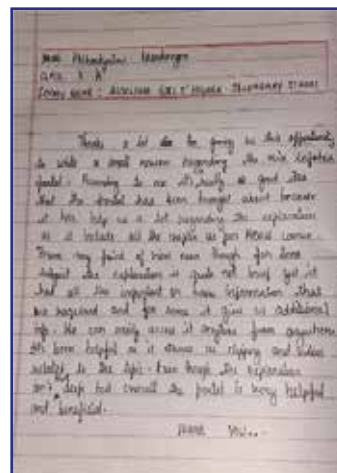 Name
CLASS X 'A'
SCHOOL NAME : AUXILIUM GIRLS' HIGHER SECONDARY SCHOOL
Thanks a lot for giving us this opportunity
to write a small review regarding the
portal. According to me it's really a good idea
that the portal has been brought about because
it has help us a lot regarding the explanation
as it include all the chapter as per MBOSE course.
From my point of view even though for some
subject the explanation is quite not brief yet it
had all the important information that
we required and for some it give us additional
info. We can easily access it anytime from anywhere
It's been helpful as it shows us clipping and videos
related to the topic. Even though the explanation
isn't deep but overall the portal is very helpful
and beneficial.
THANK YOU